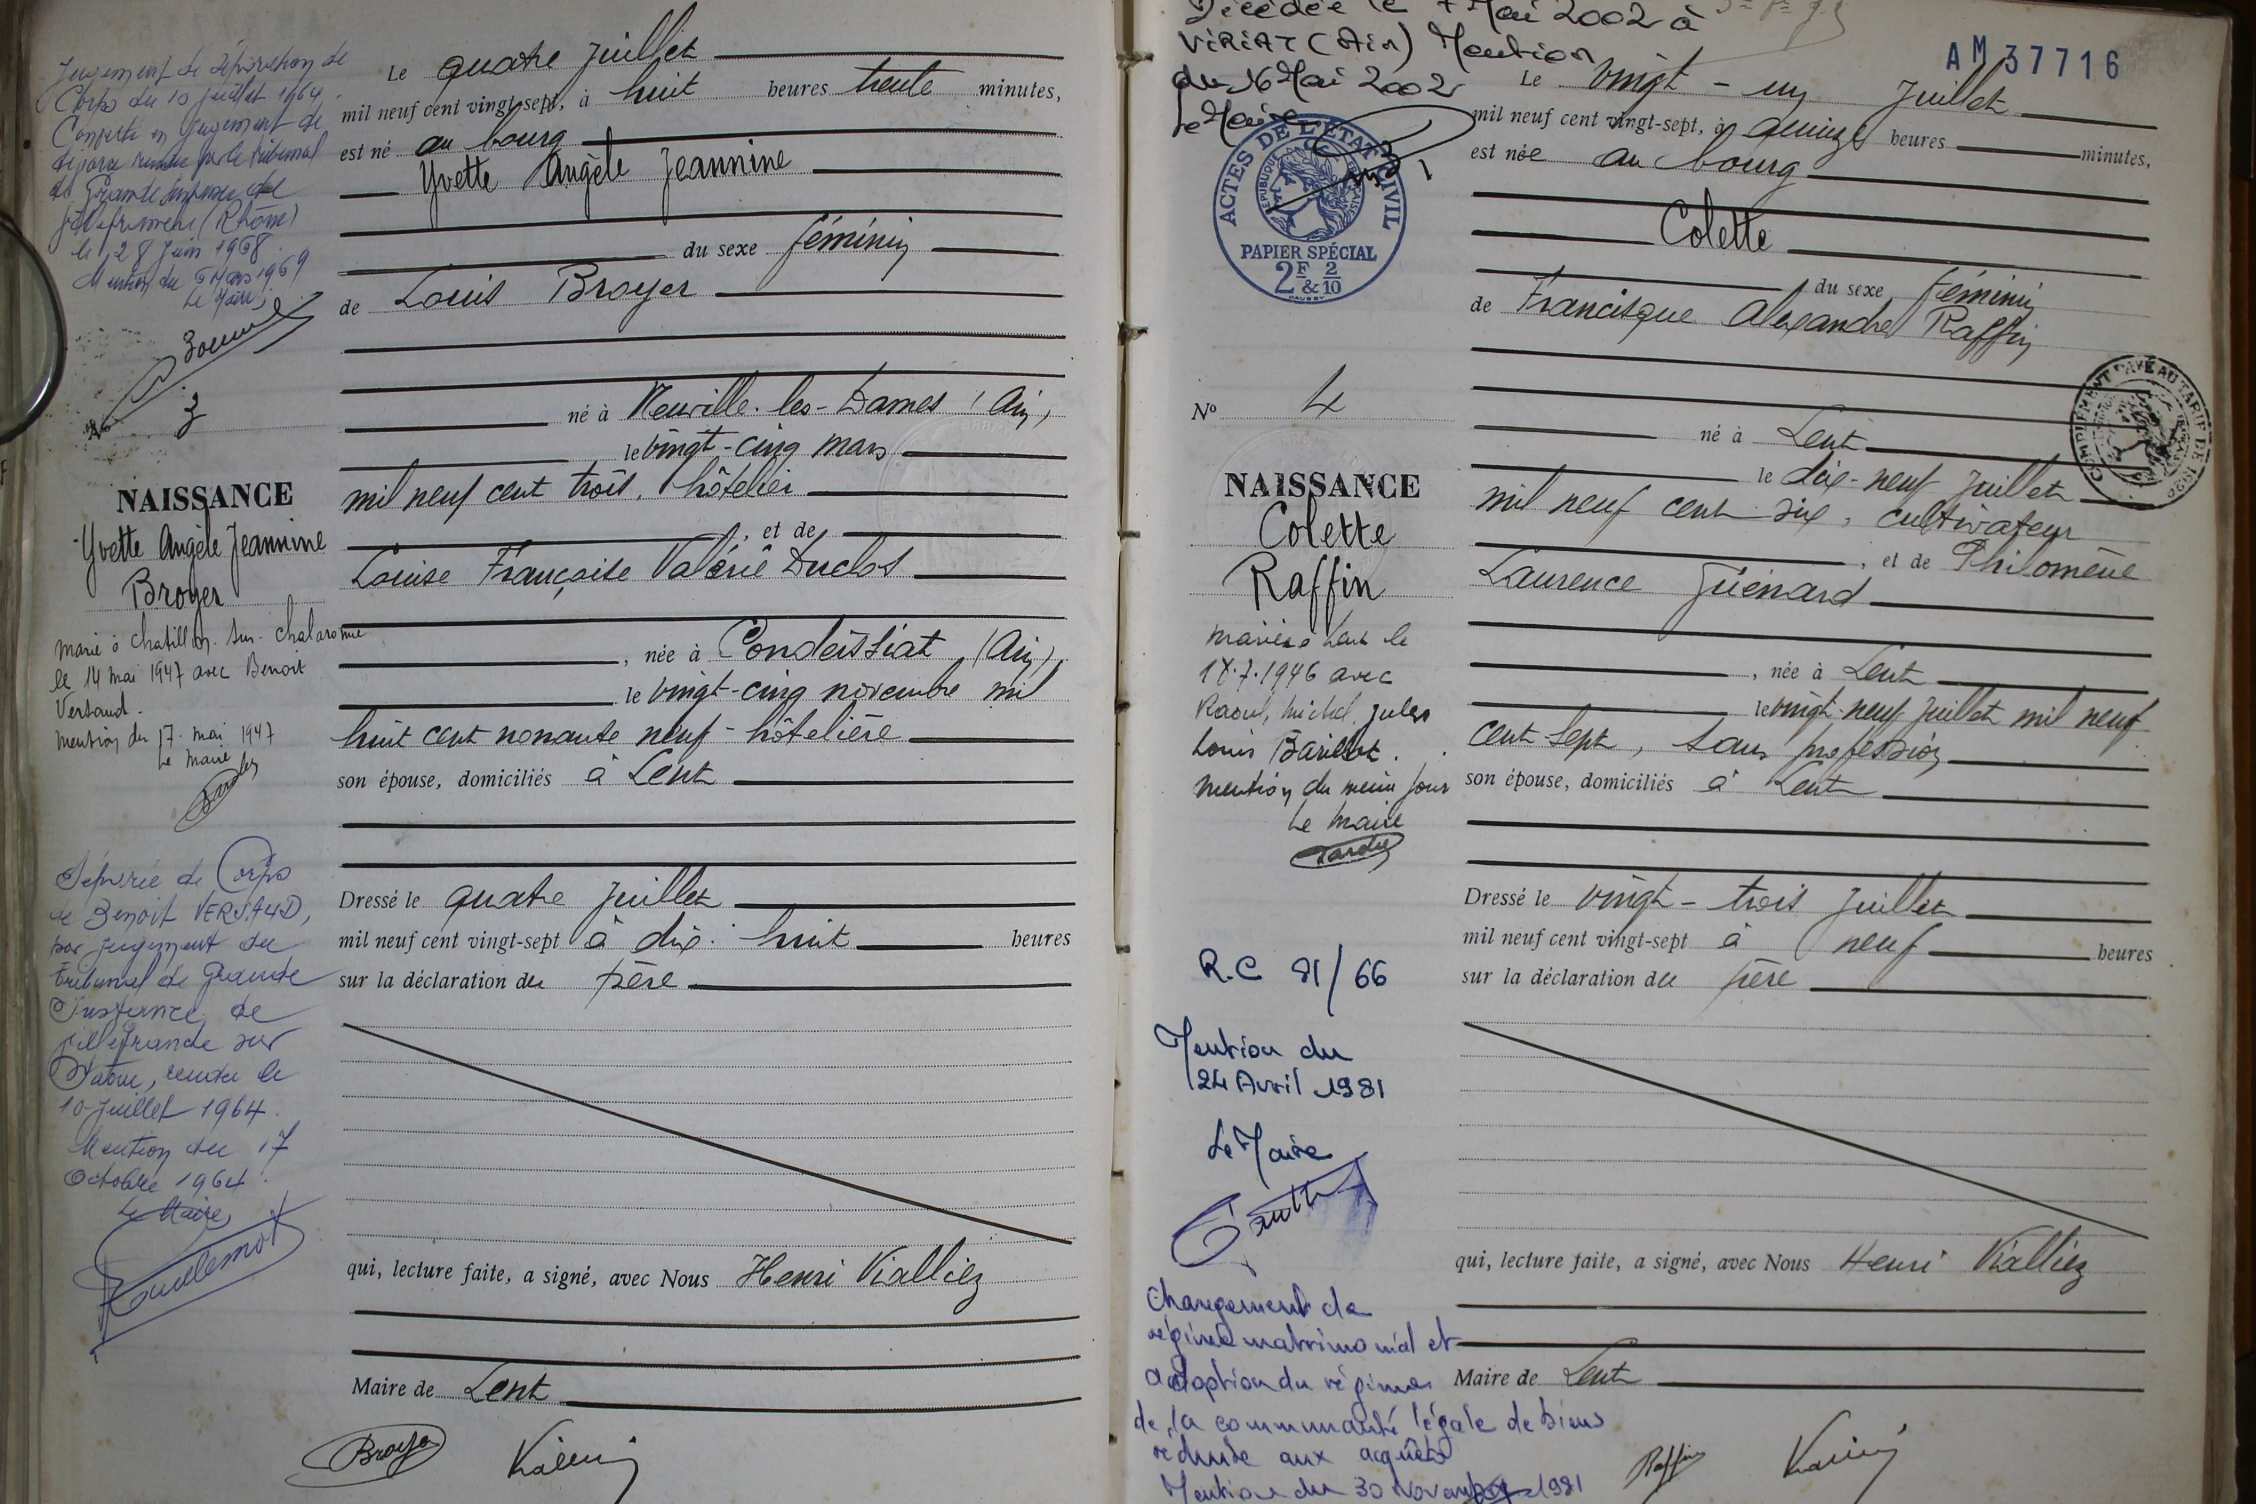 Jugement de séparation de
Corps du 10 juillet 1964
Converti en jugement de
divorce rendu par le tribunal
de Grande instance de
Villefranche (Rhône)
le 28 Juin 1968.
Mention du 5 Mars 1969
Le Maire,
N° 3
NAISSANCE
Yvette Angèle Jeannine
Broyer
marié à Chatillon-sur-Chalaronne
le 14 mai 1947 avec Benoit
Versaud.
mention du 17 mai 1947
Le maire
Séparée de Corps
de Benoit VERSAUD,
par jugement du
tribunal de Grande
Instance de
Villefranche sur
Saône, rendu le
10 Juillet 1964.
Mention du 17
Octobre 1964.
Le Maire,
Le quatre juillet
mil neuf cent vingt-sept, à huit heures trente minutes,
est né au bourg
Yvette Angèle Jeannine
du sexe féminin
de Louis Broyer
né à Neuville-les-Dames (Ain)
le vingt-cinq mars
mil neuf cent trois, hôtelier
, et de
Louise Françoise Valérie Duclos
, née à Condeissiat (Ain)
le vingt-cinq novembre mil
huit cent nonante neuf - hôtelière
son épouse, domiciliés à Lent
Dressé le quatre juillet
mil neuf cent vingt-sept à dix-huit heures
sur la déclaration du père
qui, lecture faite, a signé, avec Nous Henri Vialliez
Maire de Lent
Broyer
Décédée le 7 Mai 2002 à
VIRIAT (Ain) Mention
du 16 Mai 2002
Le Maire
ACTES DE L'ÉTAT CIVIL
RÉPUBLIQUE FRANÇAISE
PAPIER SPÉCIAL
2F 2
& 10
N° 4
NAISSANCE
Colette
Raffin
mariée à Lent le
18.7.1946 avec
Raoul, Michel, Jules
Louis Barillot.
mention du même jour
Le maire
Tardy
R.C 81/66
Mention du
24 Avril 1981
Le Maire
Changement de
régime matrimonial et
adoption du régime
de la communauté légale de biens
réduite aux acquêts
Mention du 30 Novembre 1981
AM 37716
Le vingt-un juillet
mil neuf cent vingt-sept, à quinze heures minutes,
est née au bourg
Colette
du sexe féminin
de Francisque Alexandre Raffin
COMPLÉMENT PAYÉ AU TARIF DE 1926
né à Lent
le dix-neuf juillet
mil neuf cent six, cultivateur
, et de Philomène
Laurence Guénard
, née à Lent
le vingt-neuf juillet mil neuf
cent sept, sans profession
son épouse, domiciliés à Lent
Dressé le vingt-trois juillet
mil neuf cent vingt-sept à neuf heures
sur la déclaration du père
qui, lecture faite, a signé, avec Nous Henri Vialliez
Maire de Lent
Raffin